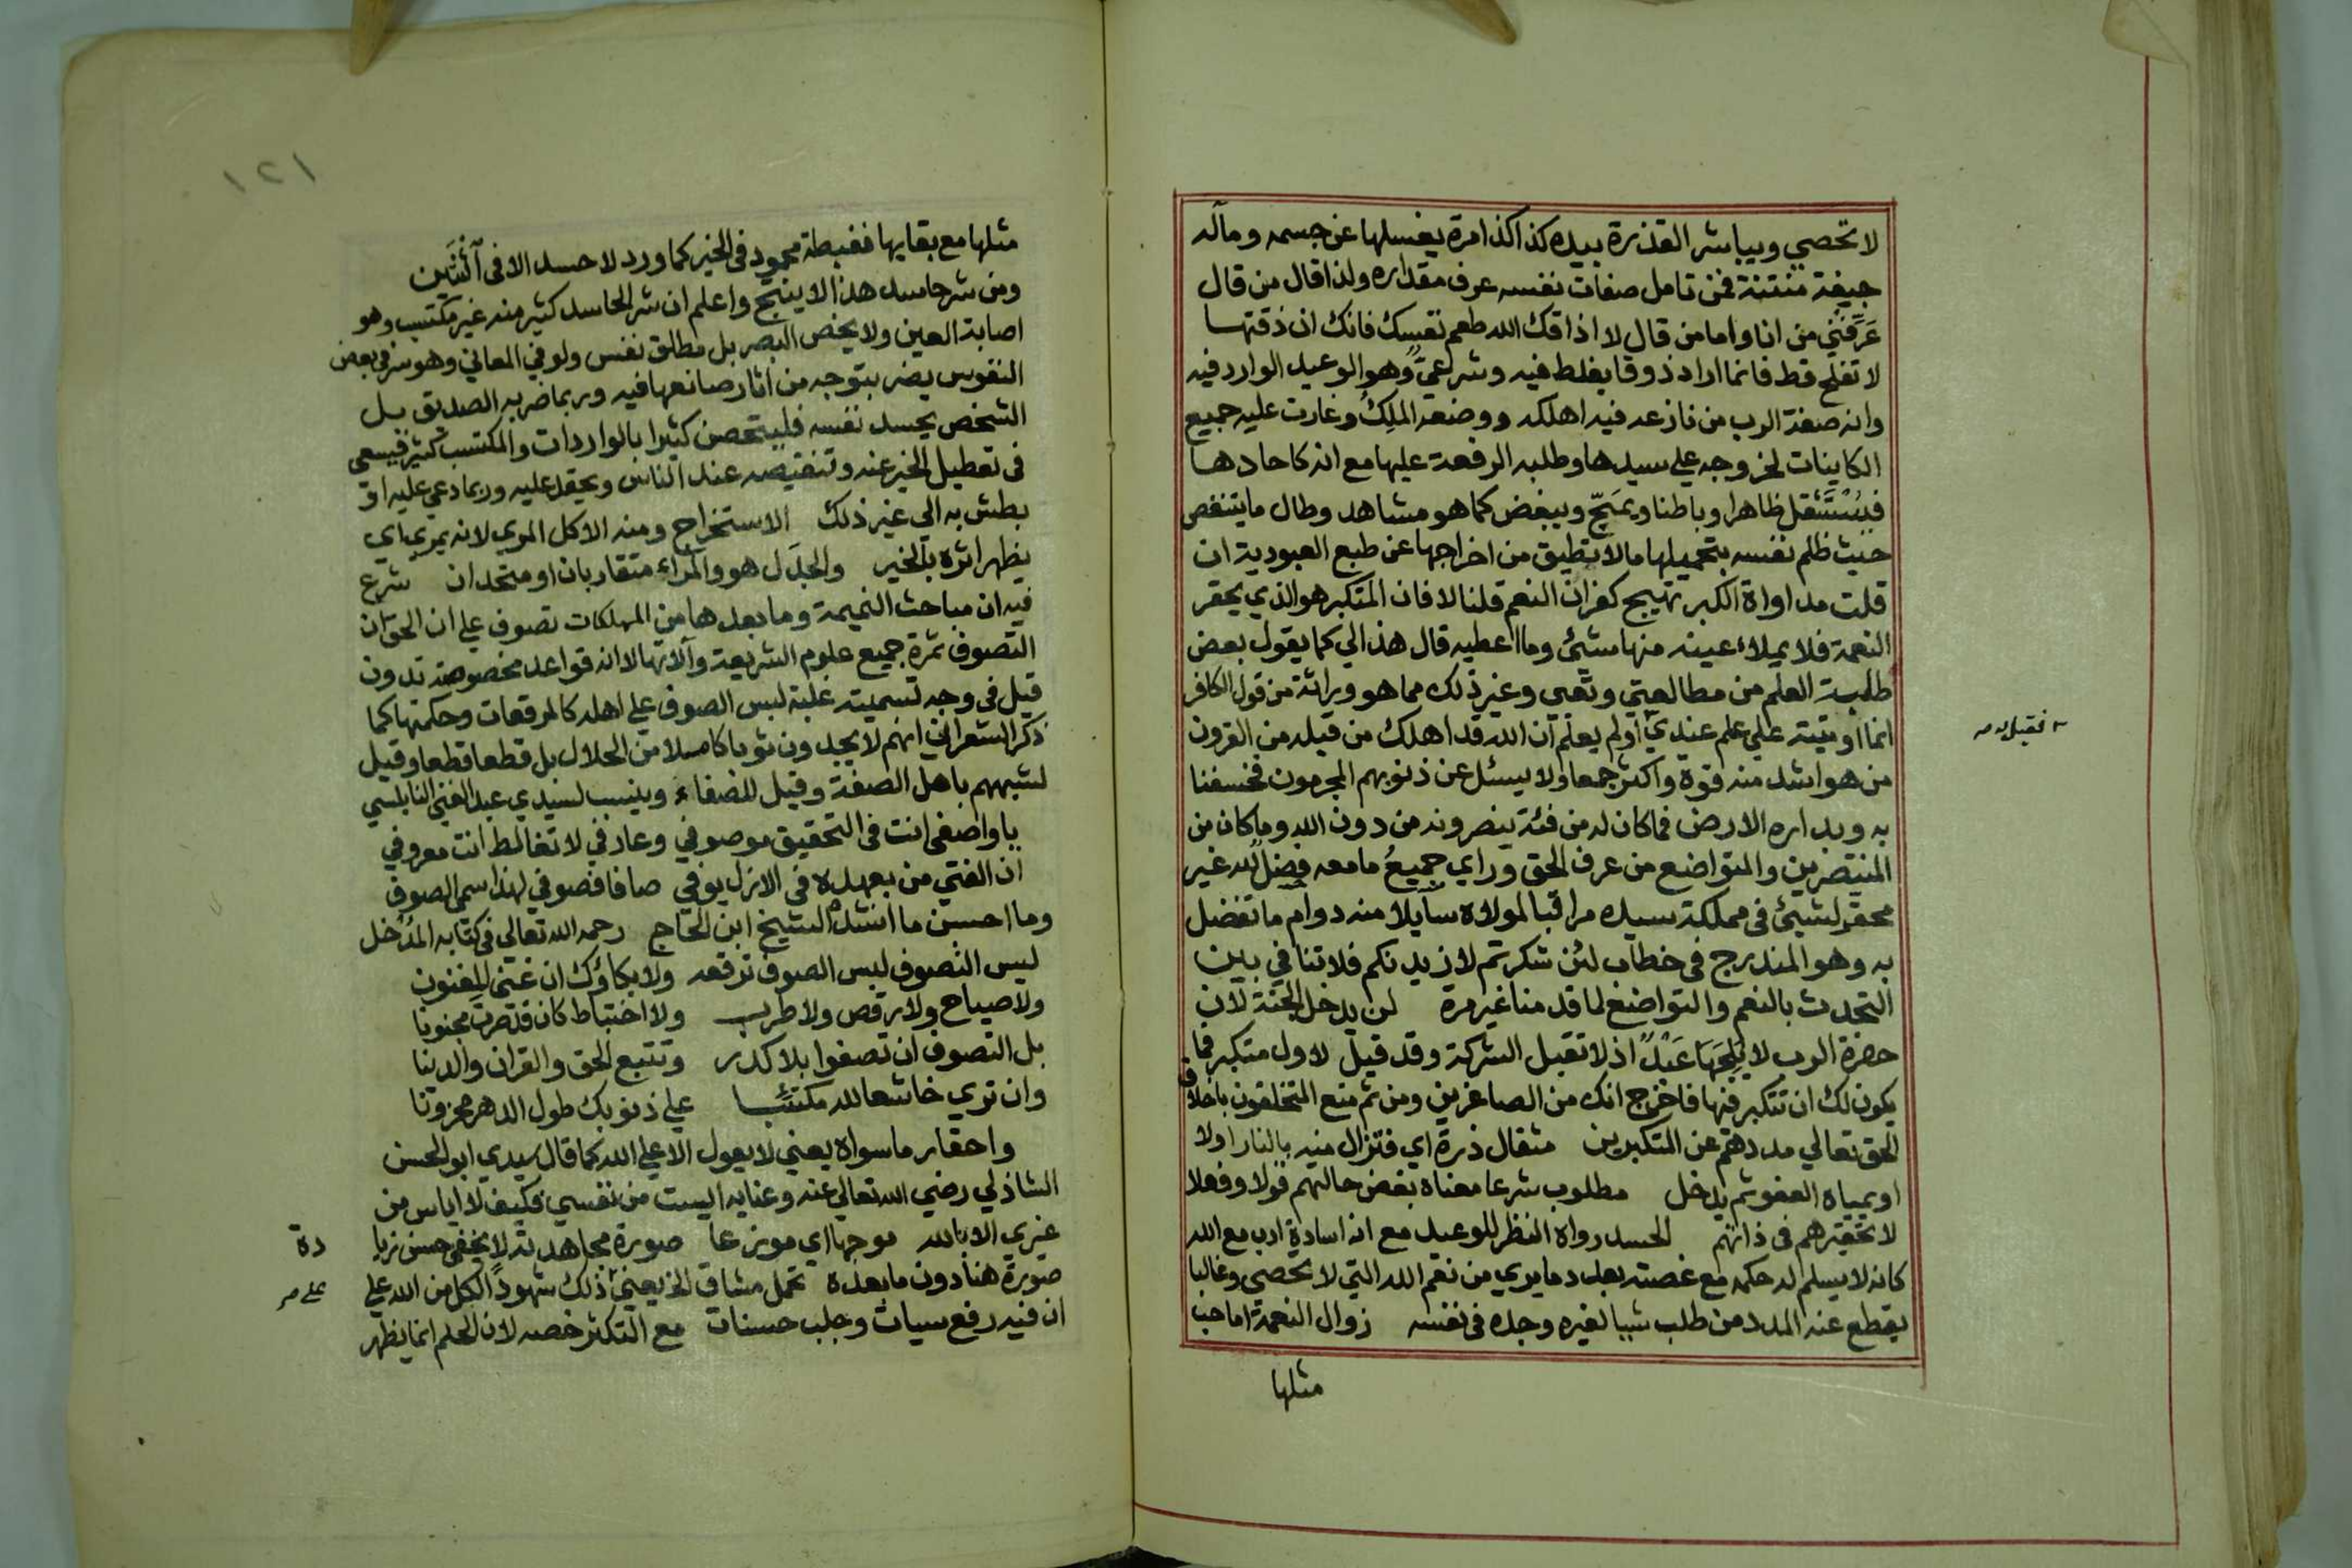 لا تحصي ويباشر القذرة بيده كذا كذا مرة يغسلها عن جسمه ومآله
جيفة منتنة فمن تامل صفات نفسه عرف مقداره ولذا قال من قال
عَرِّفني من انا واما من قال لا اذاقك الله طعم نفسك فانك ان ذقتها
لا تفلح قط فانما اراد ذوقا يغلط فيه وشرعيٌّ وهو الوعيد الوارد فيه
وانه صفة الرب من نازعه فيه اهلكه ووضعه الملِكُ وغارت عليه جميع
الكاينات لخروجه علي سيدها وطلبه الرفعة عليها مع انه كاحادها
فيُسْتَثْقل ظاهرا وباطنا ويمَجّ ويبغض كما هو مشاهد وطال ما يتنغص
حيث ظلم نفسه بتحميلها ما لا تطيق من اخراجها عن طبع العبودية ان
قلت مداواة الكبر تهيج كفران النعم قلنا لا فان المتكبر هو الذي يحقر
النعمة فلا يملاء عينه منها شئ وما اعطيه قال هذا لي كما يقول بعض
طلبة العلم من مطالعتي وتعبي وغير ذلك مما هو وراثة من قول الكافر
انما اوتيته علي علم عندي اولم يعلم ان الله قد اهلك من قبله من القرون
من هو اشد منه قوة واكثر جمعا ولا يسئل عن ذنوبهم المجرمون فخسفنا
به وبداره الارض فما كان له من فئة ينصرونه من دون الله وما كان من
المنتصرين والمتواضع من عرف الحق وراي جميعُ ما معه فضلُ الله غير
محقر لشيئ في مملكة سيده مراقبا لمولاه سايلا منه دوام ما تفضل
به وهو المندرج في خطاب لئن شكرتم لازيدنكم فلا تنافي بين
التحدث بالنعم والتواضع لما قدمنا غير مرة لن يدخل الجنة لان
حضرة الرب لا يَلِجَهَا عَبْدٌ اذ لا تقبل الشركة وقد قيل لاول متكبر فما
يكون لك ان تتكبر فيها فاخرج انك من الصاغرين ومن ثم منع المتخلقون باخلاق
الحق تعالي مددهم عن المتكبرين مثقال ذرة اي فتزال منه بالنار اولا
او بمياه العفو ثم يدخل مطلوب شرعا معناه بغض حالتهم قولا وفعلا
لا تحقيرهم في ذاتهم الحسد رواه النظر للوعيد مع انه اساءة ادب مع الله
كانه لا يسلم له حكمه مع غصته بعدد ما يري من نعم الله التي لا تحصي وغالبا
يقطع عنه المدد من طلب شيا لغيره وجده في نفسه زوال النعمة اما حب
مثلها
١٢١
مثلها مع بقايها فغبطة محمود في الخير كما ورد لا حسد الا في اثنَين
ومن شر حاسد هذا لا ينتج واعلم ان شر الحاسد كثير منه غير مكتسب وهو
اصابة العين ولا يخص البصر بل مطلق نفس ولو في المعاني وهو سر في بعض
النفوس يضر بتوجه من اثار صانعها فيه وربما ضر به الصديق بل
الشخص يحسد نفسه فليتحصن كثيرا بالواردات والمكتسب كثير فيسعى
في تعطيل الخير عنه وتنقيصه عند الناس ويحقد عليه وربما دعي عليه او
بطش به الي غير ذلك الاستخراج ومنه الاكل المري لانه يمري اي
يظهر اثره بالخير والجدَل هو والمراء متقاربان او متحدان شرع
فيه ان مباحث النميمة وما بعدها من المهلكات تصوف علي ان الحق ان
التصوف ثمرة جميع علوم الشريعة وآلاتها لا انه قواعد مخصوصة تدون
قيل في وجه تسميته غلبة لبس الصوف علي اهله كالمرقعات وحكمتها كما
ذكر الشعراني انهم لا يجدون ثوبا كاملا من الحلال بل قطعا قطعا وقيل
لشبههم باهل الصفة وقيل للصفاء وينسب لسيدي عبد الغني النابلسي
يا واصفي انت في التحقيق موصوفي وعارفي لا تغالط انت معروفي
ان الفتي من بعهده في الازل يوفي صافا فصوفي لهذا سمي الصوفي
وما احسن ما انشده الشيخ ابن الحاج رحمه الله تعالى في كتابه المَدْخل
ليس التصوف لبس الصوف ترقعه ولا بكاؤك ان غنى المغنون
ولا صياح ولا رقص ولا طرب ولا اختباط كان قد صرت مجنونا
بل التصوف ان تصفوا بلا كدر وتتبع الحق والقران والدينا
وان تري خاشعا لله مكتئبا علي ذنوبك طول الدهر محزونا
واحقار ما سواه يعني لا يعول الا علي الله كما قال سيدي ابو الحسن
الشاذلي رضي الله تعالي عنه وعنا به ايست من نفسي فكيف لا اياس من
غيري الا بالله موجها اي موزعا صورة مجاهدته لا يخفي حسن زيا دة
صورة هنا دون ما بعده تحمل مشاق الخ يعني ذلك شهود الكل من الله علي
ان فيه رفع سيات وجلب حسنات مع التكثر خصه لان الحلم انما يظهر